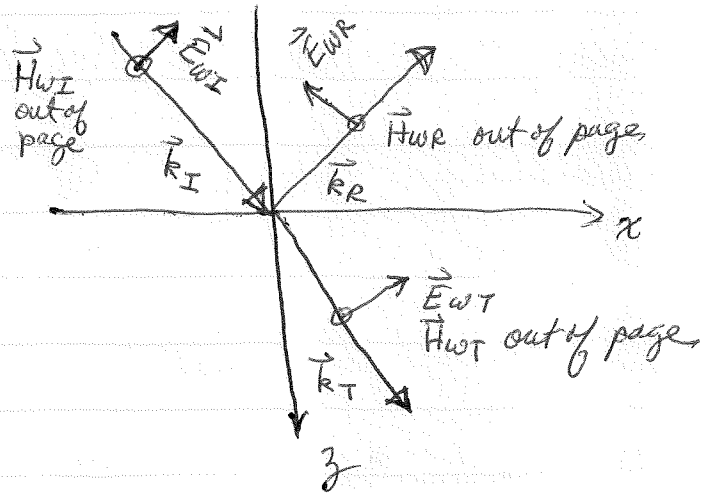 H⃗ωI
out of
page
E⃗ωI
E⃗ωR
H⃗ωR out of page,
k⃗I
k⃗R
x
E⃗ωT
H⃗ωT out of page,
k⃗T
z